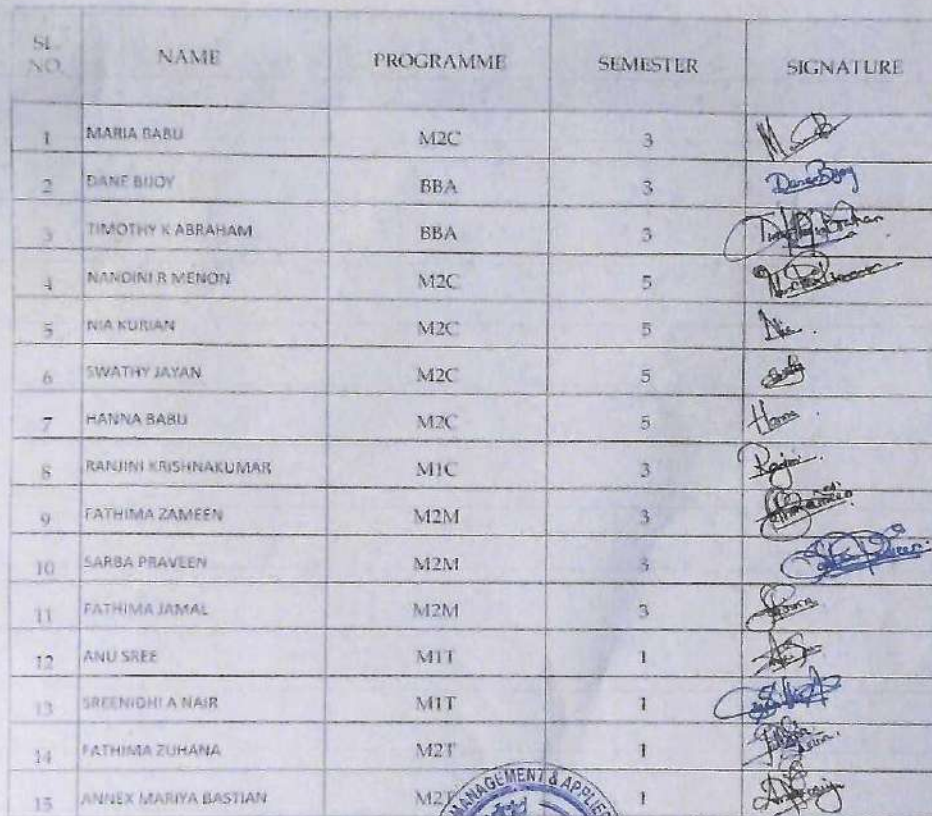 SL. NO. NAME PROGRAMME SEMESTER SIGNATURE
1 MARIA BABU M2C 3
2 DANE BIJOY BBA 3 Dane Bijoy
3 TIMOTHY K ABRAHAM BBA 3
4 NANDINI R MENON M2C 5
5 NIA KURIAN M2C 5 Nia.
6 SWATHY JAYAN M2C 5
7 HANNA BABU M2C 5 Hanna
8 RANJINI KRISHNAKUMAR M1C 3
9 FATHIMA ZAMEEN M2M 3
10 SARBA PRAVEEN M2M 3
11 FATHIMA JAMAL M2M 3
12 ANU SREE M1T 1
13 SREENIDHI A NAIR M1T 1
14 FATHIMA ZUHANA M2T 1
15 ANNEX MARIYA BASTIAN M2T 1
MANAGEMENT & APPLIED